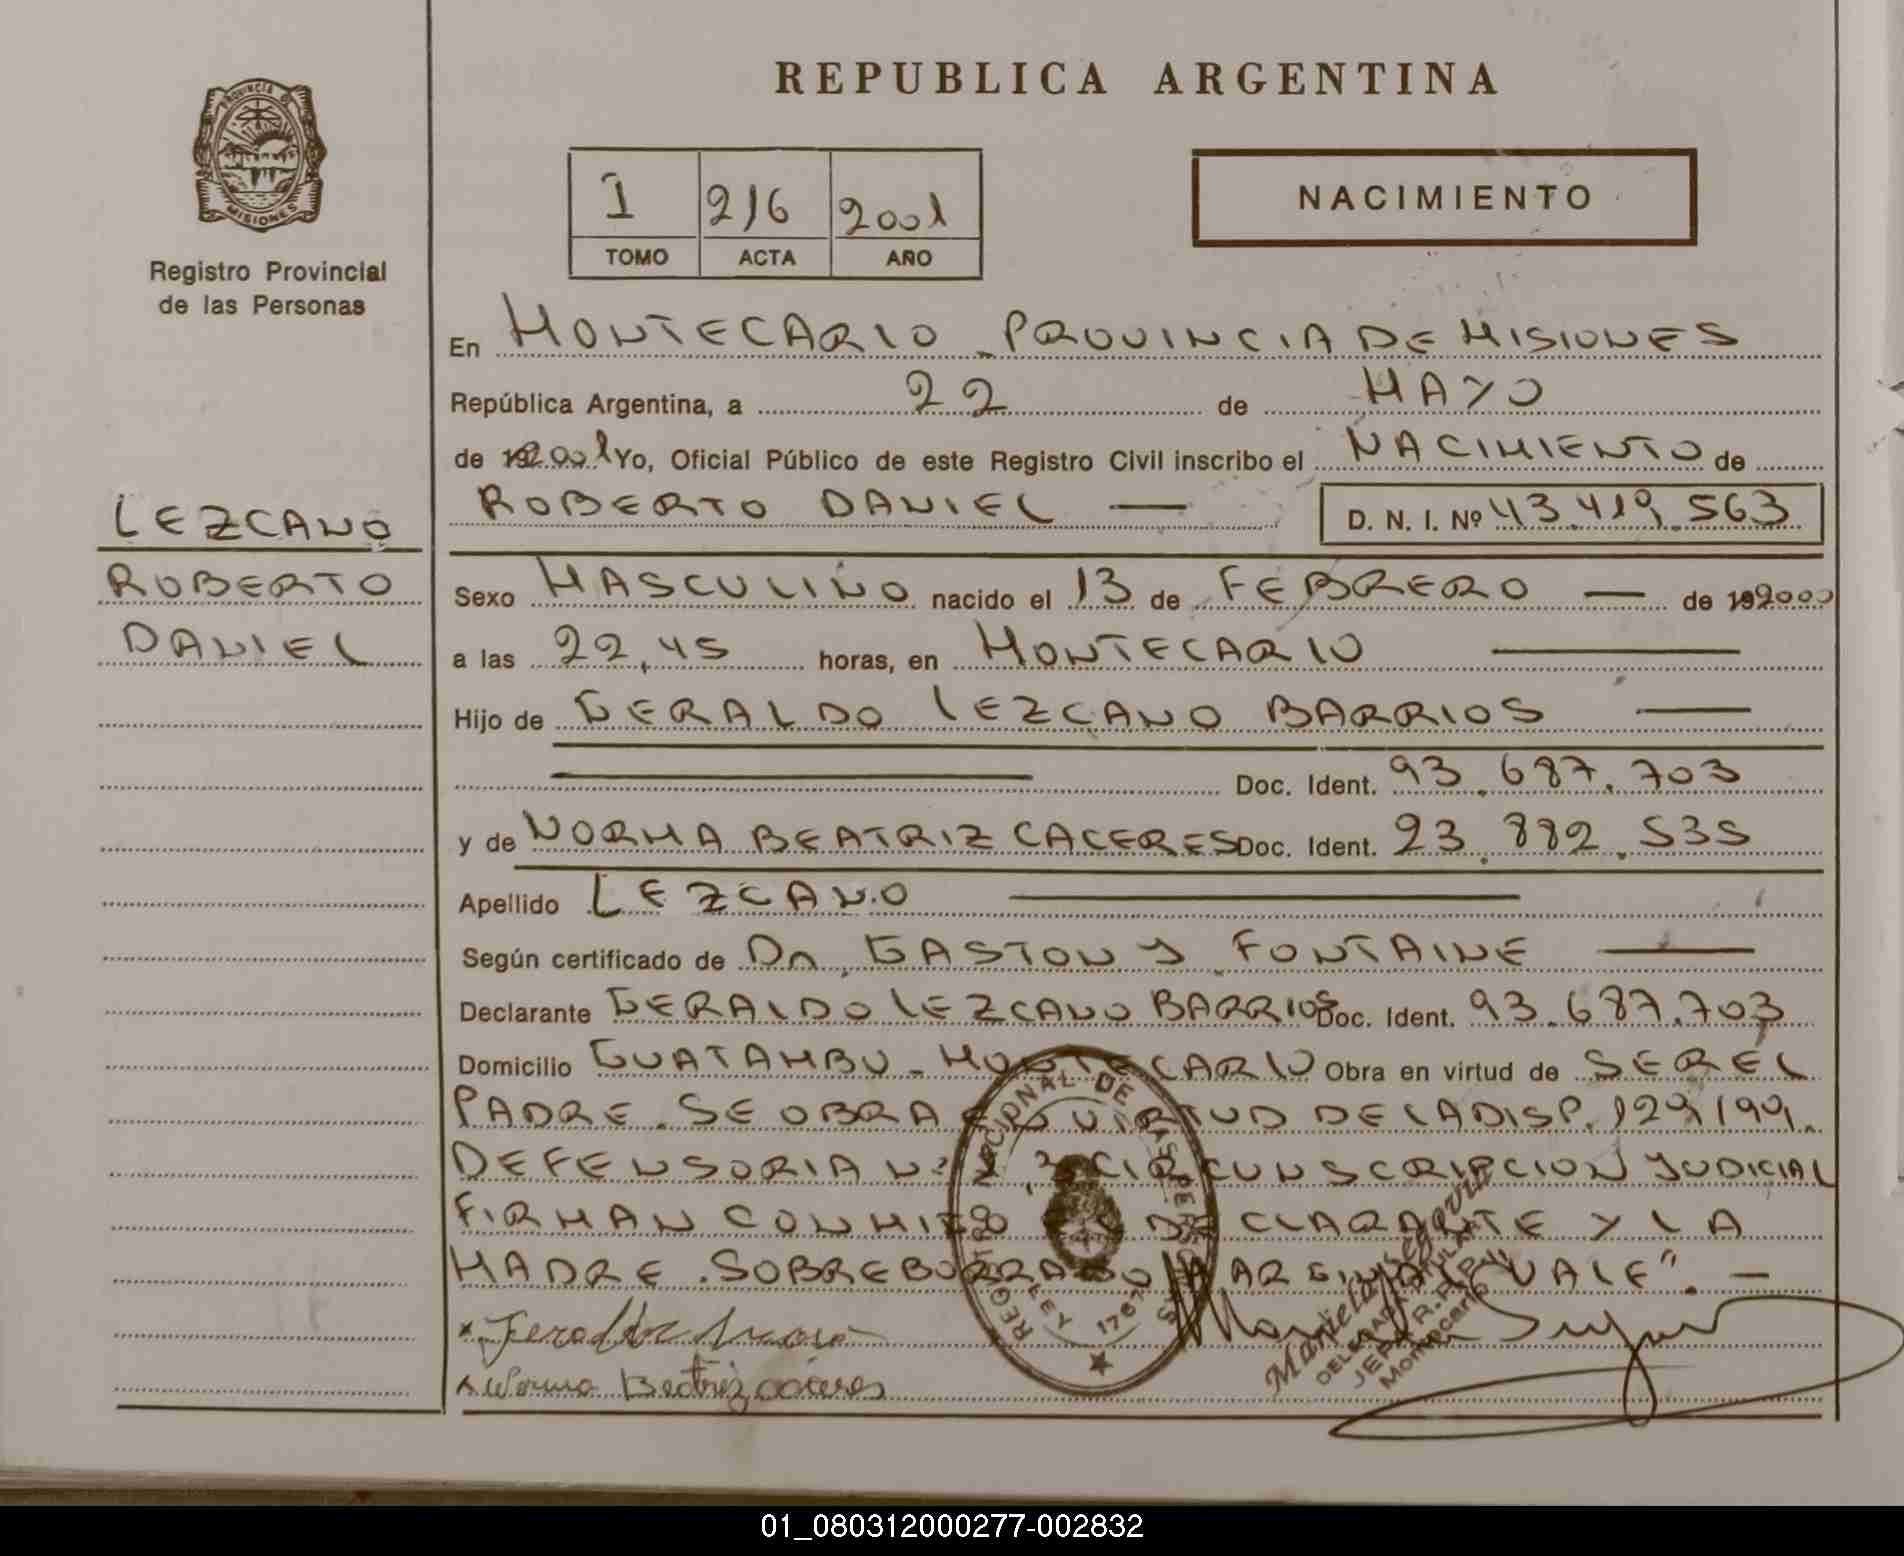 REPUBLICA ARGENTINA
PROVINCIA DE MISIONES
Registro Provincial
de las Personas
1 216 2001
TOMO ACTA AÑO
NACIMIENTO
En MONTECARLO - PROVINCIA DE MISIONES
República Argentina, a 22 de MAYO
de 2001 Yo, Oficial Público de este Registro Civil inscribo el NACIMIENTO de
ROBERTO DANIEL — D. N. I. Nº 43.419.563
LEZCANO
ROBERTO
DANIEL
Sexo MASCULINO nacido el 13 de FEBRERO — de 2000
a las 22,45 horas, en MONTECARLO —
Hijo de GERALDO LEZCANO BARRIOS —
— Doc. Ident. 93.687.703
y de NORMA BEATRIZ CACERES Doc. Ident. 23.882.535
Apellido LEZCANO —
Según certificado de Dr. GASTON J. FONTAINE —
Declarante GERALDO LEZCANO BARRIOS Doc. Ident. 93.687.703
Domicilio GUATAMBU - MONTECARLO Obra en virtud de SER EL
PADRE. SE OBRA EN VIRTUD DE LA DISP. 129/99.
DEFENSORIA Nº CIRCUNSCRIPCION JUDICIAL
FIRMAN CONMIGO DECLARANTE Y LA
MADRE. SOBREBORRADO MARGINAL "VALE". —
Norma Beatriz Caceres
REGISTRO NACIONAL DE LAS PERSONAS
LEY 17671
DELEGADA TITULAR
Montecarlo
01_080312000277-002832